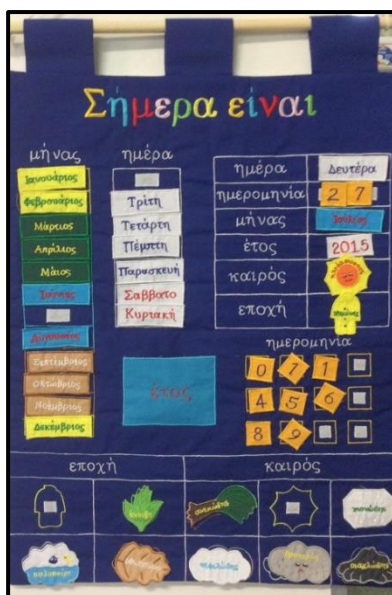 Σήμερα είναι
μήνας
Ιανουάριος
Φεβρουάριος
Μάρτιος
Απρίλιος
Μάιος
Ιούνιος
Αύγουστος
Σεπτέμβριος
Οκτώβριος
Νοέμβριος
Δεκέμβριος
ημέρα
Τρίτη
Τετάρτη
Πέμπτη
Παρασκευή
Σαββατο
Κυριακή
ημέρα Δευτέρα
ημερομηνία 2 7
μήνας Ιούλιος
έτος 2015
καιρός
εποχή
έτος
ημερομηνία
0 1 1
4 5 6
8 9
εποχή
άνοιξη
καλοκαίρι
καιρός